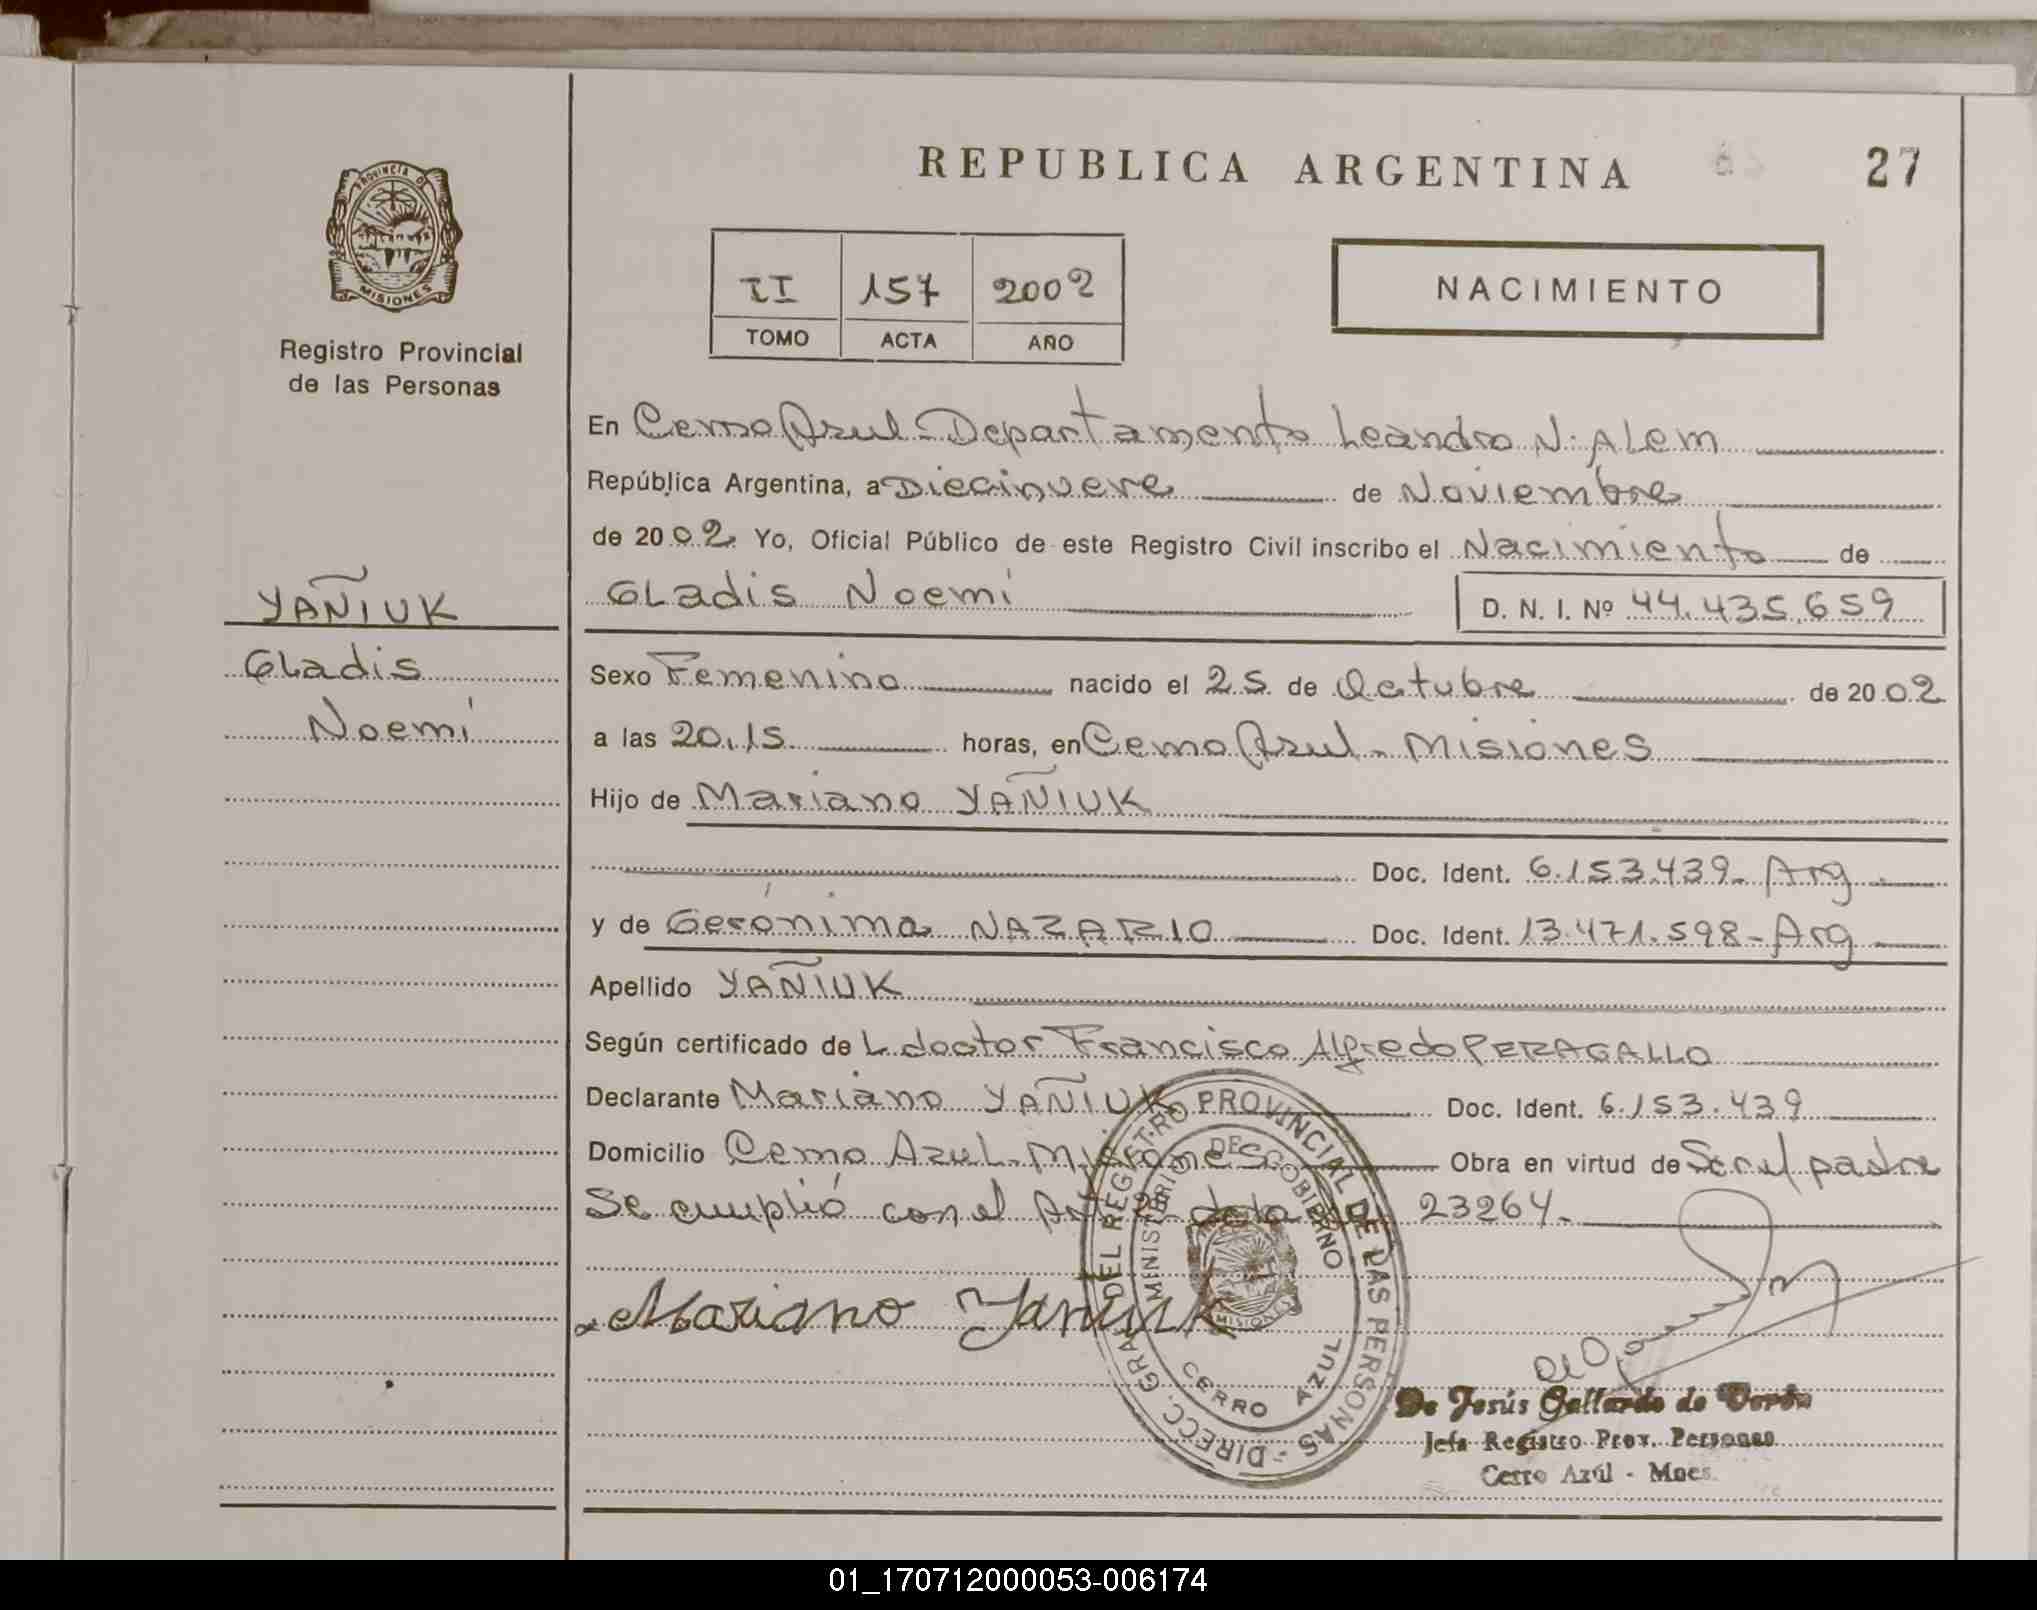 REPUBLICA ARGENTINA
27
PROVINCIA DE
MISIONES
Registro Provincial
de las Personas
II 157 2002
TOMO ACTA AÑO
NACIMIENTO
En Cerro Azul - Departamento Leandro N. Alem
República Argentina, a Diecinueve de Noviembre
de 2002 Yo, Oficial Público de este Registro Civil inscribo el Nacimiento de
Gladis Noemí D. N. I. Nº 44.435.659
YAÑIUK
Gladis
Noemí
Sexo Femenino nacido el 25 de Octubre de 2002
a las 20.15 horas, en Cerro Azul - Misiones
Hijo de Mariano YAÑIUK
Doc. Ident. 6.153.439 - Arg.
y de Gerónima NAZARIO Doc. Ident. 13.471.598 - Arg
Apellido YAÑIUK
Según certificado de L doctor Francisco Alfredo PERAGALLO
Declarante Mariano YAÑIUK Doc. Ident. 6.153.439
Domicilio Cerro Azul - Misiones Obra en virtud de Ser el padre
Se cumplió con el Art 2º de la 23264.
Mariano Yañiuk
DIRECC. GRAL DEL REGISTRO PROVINCIAL DE LAS PERSONAS -
MINISTERIO DE GOBIERNO
MISIONES
CERRO AZUL
De Jesús Gallardo de Verón
Jefa Registro Prov. Personas
Cerro Azúl - Mnes.
01_170712000053-006174